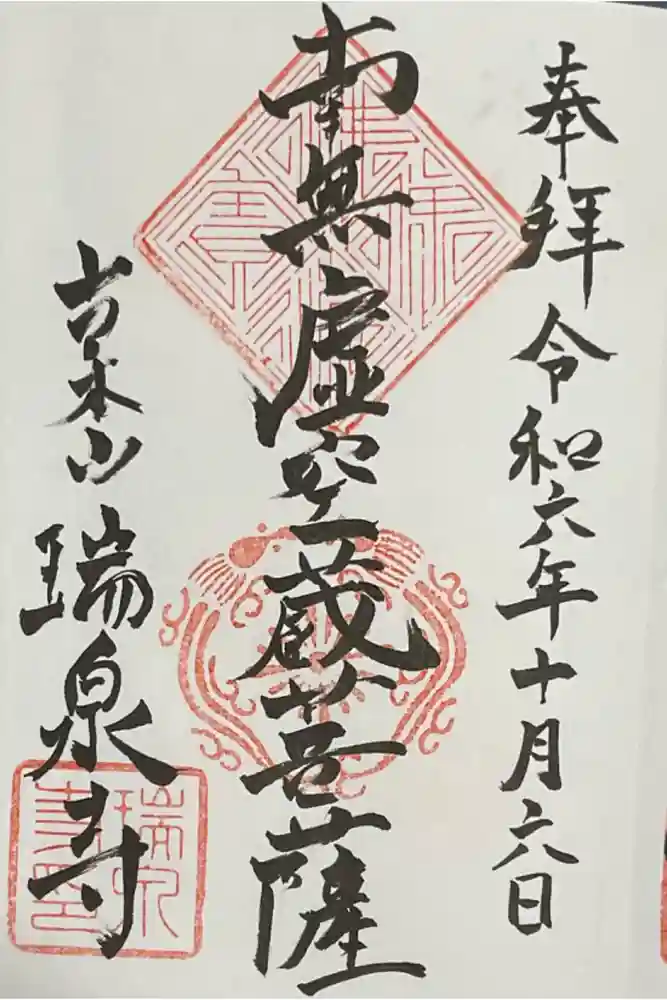 奉拝 令和六年十月六日
南無虚空蔵菩薩
山 瑞泉寺
瑞泉
寺印